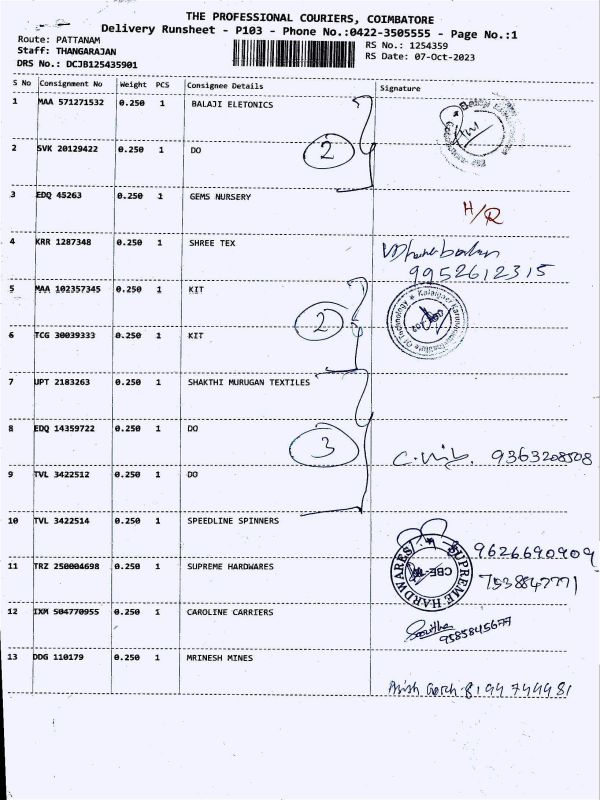 THE PROFESSIONAL COURIERS, COIMBATORE
Delivery Runsheet - P103 - Phone No.:0422-3505555 - Page No.:1
Route: PATTANAM
RS No.: 1254359
Staff: THANGARAJAN
RS Date: 07-Oct-2023
DRS No.: DCJB125435901
S No Consignment No Weight PCS Consignee Details Signature
1 MAA 571271532 0.250 1 BALAJI ELETONICS
2 SVK 20129422 0.250 1 DO 2
3 EDQ 45263 0.250 1 GEMS NURSERY
H/R
4 KRR 1287348 0.250 1 SHREE TEX
9952612315
5 MAA 102357345 0.250 1 KIT
2
6 TCG 30039333 0.250 1 KIT
7 UPT 2183263 0.250 1 SHAKTHI MURUGAN TEXTILES
8 EDQ 14359722 0.250 1 DO
3
9363208508
9 TVL 3422512 0.250 1 DO
10 TVL 3422514 0.250 1 SPEEDLINE SPINNERS
SUPREME HARDWARES
9626690909
11 TRZ 250004698 0.250 1 SUPREME HARDWARES
12 IXM 504770955 0.250 1 CAROLINE CARRIERS
9585845677
13 DDG 110179 0.250 1 MRINESH MINES